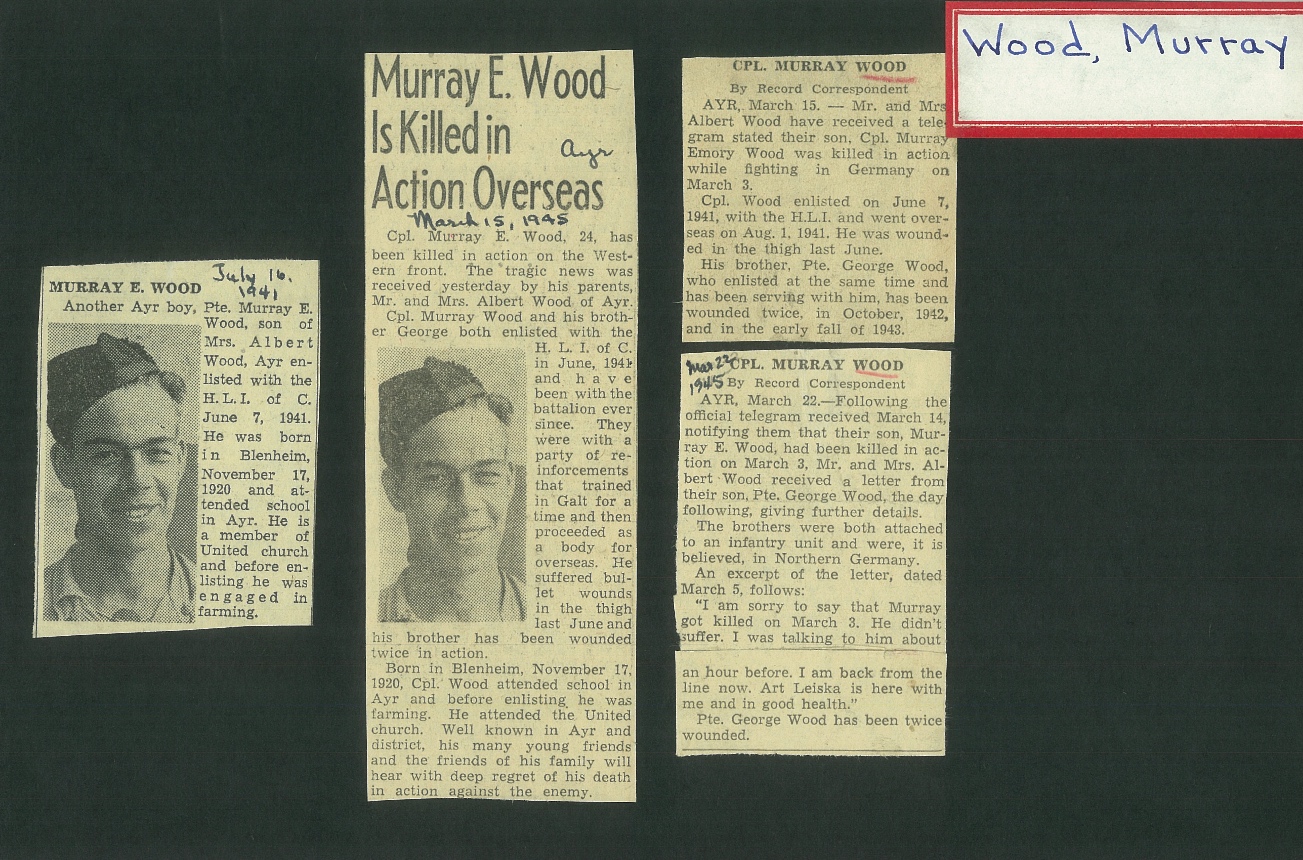 Wood, Murray
MURRAY E. WOOD
July 16,
1941
Another Ayr boy, Pte. Murray E.
Wood, son of
Mrs. Albert
Wood, Ayr en-
listed with the
H.L.I. of C.
June 7, 1941.
He was born
in Blenheim,
November 17,
1920 and at-
tended school
in Ayr. He is
a member of
United church
and before en-
listing he was
engaged in
farming.
Murray E. Wood
Is Killed in
Ayr
Action Overseas
March 15, 1945
Cpl. Murray E. Wood, 24, has
been killed in action on the West-
ern front. The tragic news was
received yesterday by his parents,
Mr. and Mrs. Albert Wood of Ayr.
Cpl. Murray Wood and his broth-
er George both enlisted with the
H. L. I. of C.
in June, 1941
and have
been with the
battalion ever
since. They
were with a
party of re-
inforcements
that trained
in Galt for a
time and then
proceeded as
a body for
overseas. He
suffered bul-
let wounds
in the thigh
last June and
his brother has been wounded
twice in action.
Born in Blenheim, November 17,
1920, Cpl. Wood attended school in
Ayr and before enlisting he was
farming. He attended the United
church. Well known in Ayr and
district, his many young friends
and the friends of his family will
hear with deep regret of his death
in action against the enemy.
CPL. MURRAY WOOD
By Record Correspondent
AYR, March 15. — Mr. and Mrs
Albert Wood have received a tele-
gram stated their son, Cpl. Murray
Emory Wood was killed in action
while fighting in Germany on
March 3.
Cpl. Wood enlisted on June 7,
1941, with the H.L.I. and went over-
seas on Aug. 1, 1941. He was wound-
ed in the thigh last June.
His brother, Pte. George Wood,
who enlisted at the same time and
has been serving with him, has been
wounded twice, in October, 1942,
and in the early fall of 1943.
Mar 22
1945
CPL. MURRAY WOOD
By Record Correspondent
AYR, March 22.—Following the
official telegram received March 14,
notifying them that their son, Mur-
ray E. Wood, had been killed in ac-
tion on March 3, Mr. and Mrs. Al-
bert Wood received a letter from
their son, Pte. George Wood, the day
following, giving further details.
The brothers were both attached
to an infantry unit and were, it is
believed, in Northern Germany.
An excerpt of the letter, dated
March 5, follows:
"I am sorry to say that Murray
got killed on March 3. He didn't
suffer. I was talking to him about
an hour before. I am back from the
line now. Art Leiska is here with
me and in good health."
Pte. George Wood has been twice
wounded.